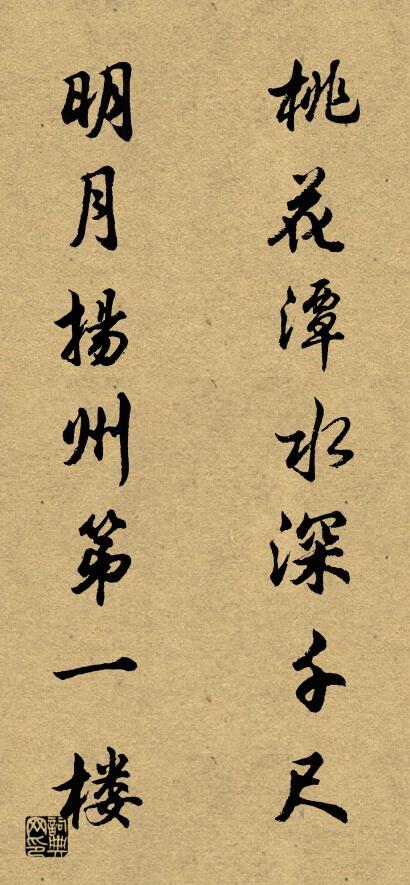 桃花潭水深千尺
明月揚州第一楼
詞典网印